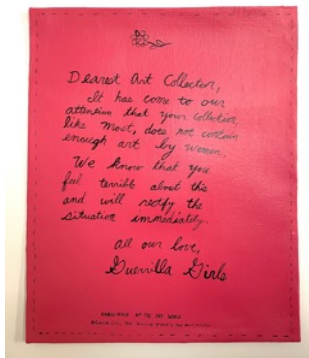 Dearest Art Collector,
It has come to our
attention that your collection,
like most, does not contain
enough art by women.
We know that you
feel terrible about this
and will rectify the
situation immediately.
All our love,
Guerrilla Girls
CONSCIENCE OF THE ART WORLD